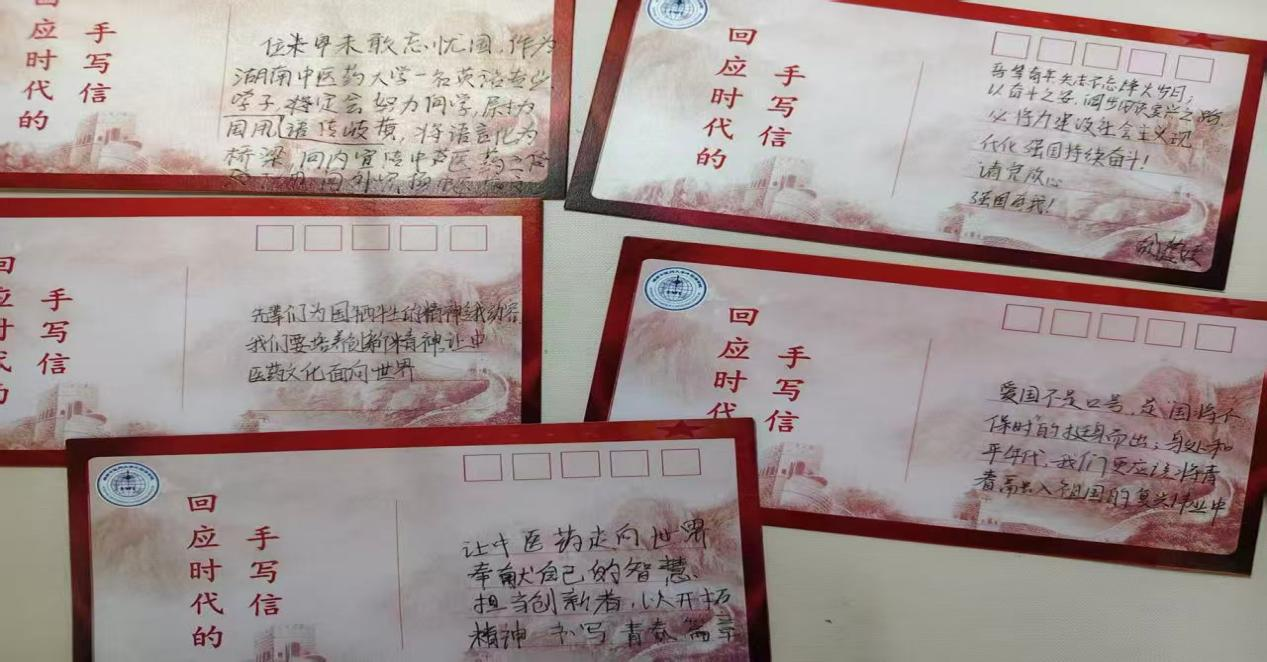 回应时代的
手写信
位卑未敢忘忧国,作为
湖南中医药大学一名英语专业
学子,将定会努力问学,尽力为
国用,语传岐黄,将语言化为
桥梁,向内宣
回应时代的
手写信
吾辈青年矢志不忘烽火岁月;
以奋斗之姿,阔步民族复兴之路
必将为建设社会主义现
代化强国持续奋斗!
请党放心
强国有我!
回应时代的
手写信
先辈们为国牺牲的精神令我动容
我们要培养创新精神,让中
医药文化面向世界
回应时代的
手写信
爱国不是口号,是国将不
保时的挺身而出;身处和
平年代,我们更应该将青
春融入祖国的复兴伟业中
回应时代的
手写信
让中医药走向世界
奉献自己的智慧、
担当创新者,以开拓
精神 书写青春篇章